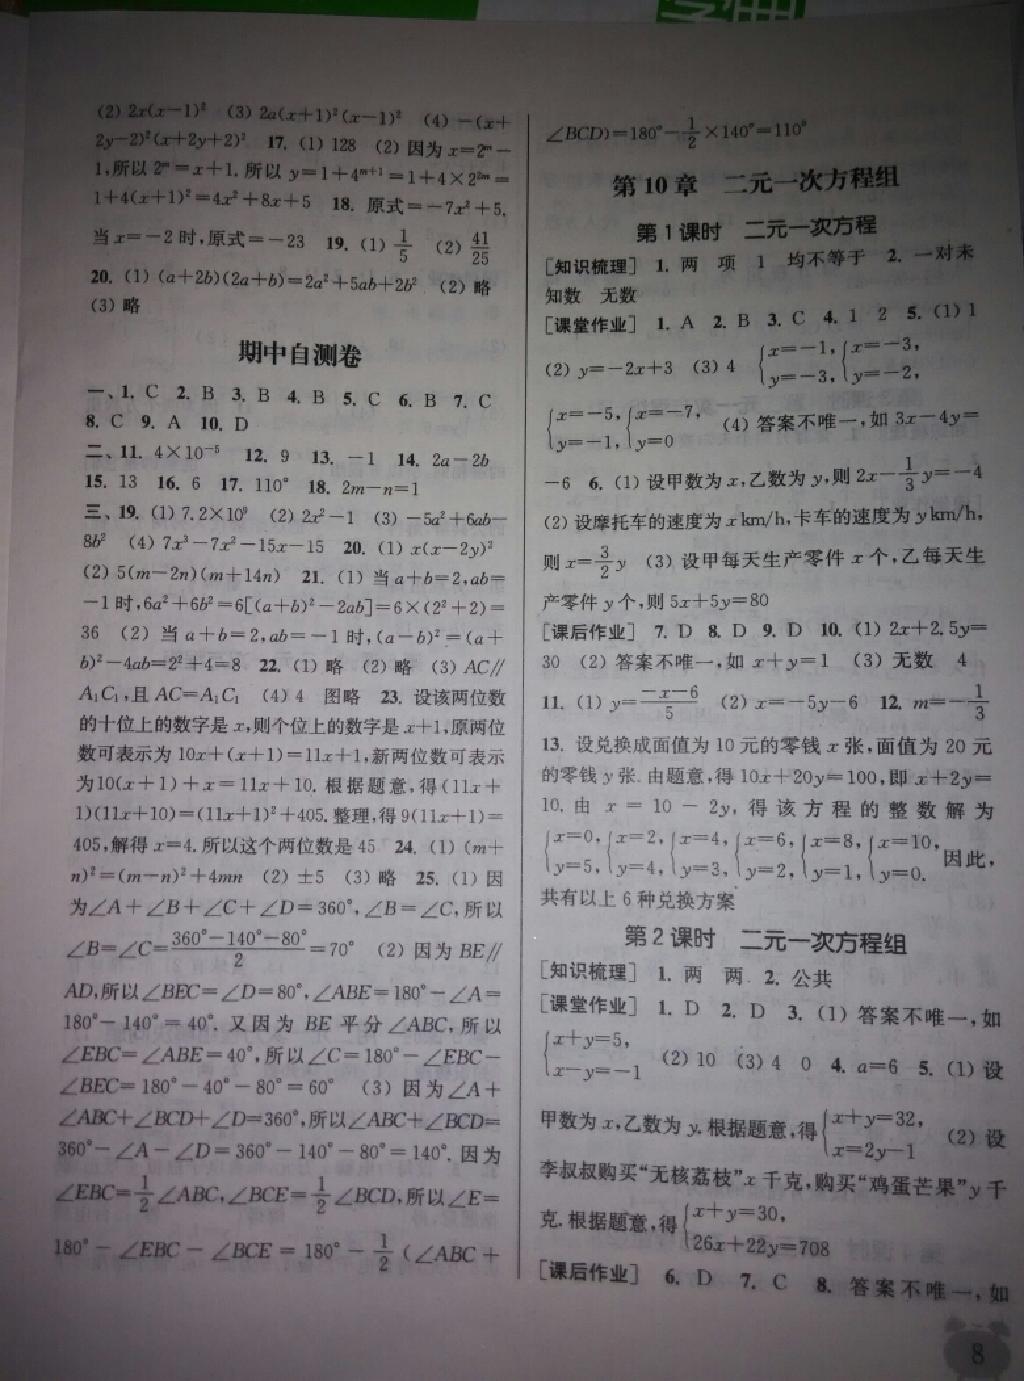 (2) 2x(x-1)² (3) 2a(x+1)²(x-1)² (4) -(x+
2y-2)²(x+2y+2)² 17. (1) 128 (2) 因为 x=2ᵐ-
1,所以 2ᵐ=x+1. 所以 y=1+4ᵐ⁺¹=1+4×2²ᵐ=
1+4(x+1)²=4x²+8x+5 18. 原式=-7x²+5,
当 x=-2 时,原式=-23 19. (1) 1/5 (2) 41/25
20. (1) (a+2b)(2a+b)=2a²+5ab+2b² (2) 略
(3) 略
期中自测卷
一、1. C 2. B 3. B 4. B 5. C 6. B 7. C
8. C 9. A 10. D
二、11. 4×10⁻⁵ 12. 9 13. -1 14. 2a-2b
15. 13 16. 6 17. 110° 18. 2m-n=1
三、19. (1) 7.2×10⁹ (2) 2x²-1 (3) -5a²+6ab-
8b² (4) 7x³-7x²-15x-15 20. (1) x(x-2y)²
(2) 5(m-2n)(m+14n) 21. (1) 当 a+b=2,ab=
-1 时,6a²+6b²=6[(a+b)²-2ab]=6×(2²+2)=
36 (2) 当 a+b=2,ab=-1 时,(a-b)²=(a+
b)²-4ab=2²+4=8 22. (1) 略 (2) 略 (3) AC∥
A₁C₁,且 AC=A₁C₁ (4) 4 图略 23. 设该两位数
的十位上的数字是 x,则个位上的数字是 x+1,原两位
数可表示为 10x+(x+1)=11x+1,新两位数可表示
为10(x+1)+x=11x+10. 根据题意,得(11x+
1)(11x+10)=(11x+1)²+405. 整理,得 9(11x+1)=
405,解得 x=4. 所以这个两位数是 45 24. (1) (m+
n)²=(m-n)²+4mn (2) ±5 (3) 略 25. (1) 因
为∠A+∠B+∠C+∠D=360°,∠B=∠C,所以
∠B=∠C=(360°-140°-80°)/2=70° (2) 因为 BE∥
AD,所以∠BEC=∠D=80°,∠ABE=180°-∠A=
180°-140°=40°. 又因为 BE 平分∠ABC,所以
∠EBC=∠ABE=40°,所以∠C=180°-∠EBC-
∠BEC=180°-40°-80°=60° (3) 因为∠A+
∠ABC+∠BCD+∠D=360°,所以∠ABC+∠BCD=
360°-∠A-∠D=360°-140°-80°=140°. 因为
∠EBC=1/2∠ABC,∠BCE=1/2∠BCD,所以∠E=
180°-∠EBC-∠BCE=180°-1/2(∠ABC+
∠BCD)=180°-1/2×140°=110°
第 10 章 二元一次方程组
第 1 课时 二元一次方程
[知识梳理] 1. 两 项 1 均不等于 2. 一对未
知数 无数
[课堂作业] 1. A 2. B 3. C 4. 1 2 5. (1) 1
(2) y=-2x+3 (3) 4 {x=-1, y=-3, {x=-3, y=-2,
{x=-5, y=-1, {x=-7, y=0 (4) 答案不唯一,如 3x-4y=
-6 6. (1) 设甲数为 x,乙数为 y,则 2x-1/3y=-4
(2) 设摩托车的速度为 x km/h,卡车的速度为 y km/h,
则 x=3/2y (3) 设甲每天生产零件 x 个,乙每天生
产零件 y 个,则 5x+5y=80
[课后作业] 7. D 8. D 9. D 10. (1) 2x+2.5y=
30 (2) 答案不唯一,如 x+y=1 (3) 无数 4
11. (1) y=(-x-6)/5 (2) x=-5y-6 12. m=-1/3
13. 设兑换成面值为 10 元的零钱 x 张,面值为 20 元
的零钱 y 张. 由题意,得 10x+20y=100,即 x+2y=
10. 由 x=10-2y, 得该方程的整数解为
{x=0, y=5, {x=2, y=4, {x=4, y=3, {x=6, y=2, {x=8, y=1, {x=10, y=0. 因此,
共有以上 6 种兑换方案
第 2 课时 二元一次方程组
[知识梳理] 1. 两 两 2. 公共
[课堂作业] 1. D 2. D 3. (1) 答案不唯一,如
{x+y=5, x-y=-1 (2) 10 (3) 4 0 4. a=6 5. (1) 设
甲数为 x,乙数为 y. 根据题意,得{x+y=32, x=2y-1 (2) 设
李叔叔购买“无核荔枝”x 千克,购买“鸡蛋芒果”y 千
克. 根据题意,得{x+y=30, 26x+22y=708
[课后作业] 6. D 7. C 8. 答案不唯一,如
8